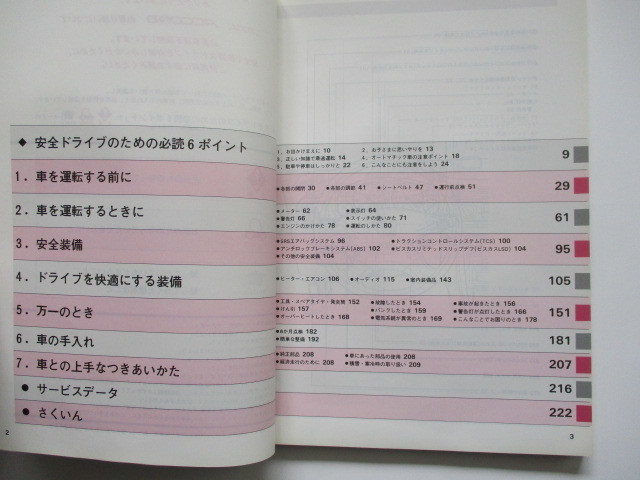 ◆ 安全ドライブのための必読6ポイント
1. 車を運転する前に
2. 車を運転するときに
3. 安全装備
4. ドライブを快適にする装備
5. 万一のとき
6. 車の手入れ
7. 車との上手なつきあいかた
● サービスデータ
● さくいん
2
1. お出かけまえに 10 2. お子さまに思いやりを 13
3. 正しい知識で最適運転 14 4. オートマチック車の注意ポイント 18
5. 駐車や停車はしっかりと 22 6. こんなことにも注意をしよう 24
9
●各部の開閉 30 ●各部の調節 41 ●シートベルト 47 ●運行前点検 51
29
●メーター 62 ●表示灯 64
●警告灯 66 ●スイッチの使いかた 71
●エンジンのかけかた 78 ●運転のしかた 80
61
●SRSエアバッグシステム 96 ●トラクションコントロールシステム(TCS) 100
●アンチロックブレーキシステム(ABS) 102 ●ビスカスリミテッドスリップデフ(ビスカスLSD) 104
●その他の安全装備 104
95
●ヒーター・エアコン 106 ●オーディオ 115 ●室内装備品 143
105
●工具・スペアタイヤ・発炎筒 152 ●故障したとき 154 ●事故が起きたとき 156
●けん引 157 ●パンクしたとき 159 ●警告灯が点灯したとき 166
●オーバーヒートしたとき 168 ●電気系統が異常のとき 169 ●こんなことでお困りのとき 178
151
●6か月点検 182
●簡単な整備 192
181
●純正部品 208 ●車にあった部品の使用 208
●経済走行のために 208 ●積雪・寒冷時の取り扱い 209
207
216
222
3